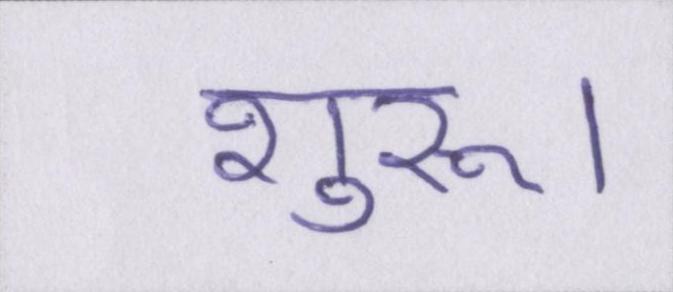 शुरू।